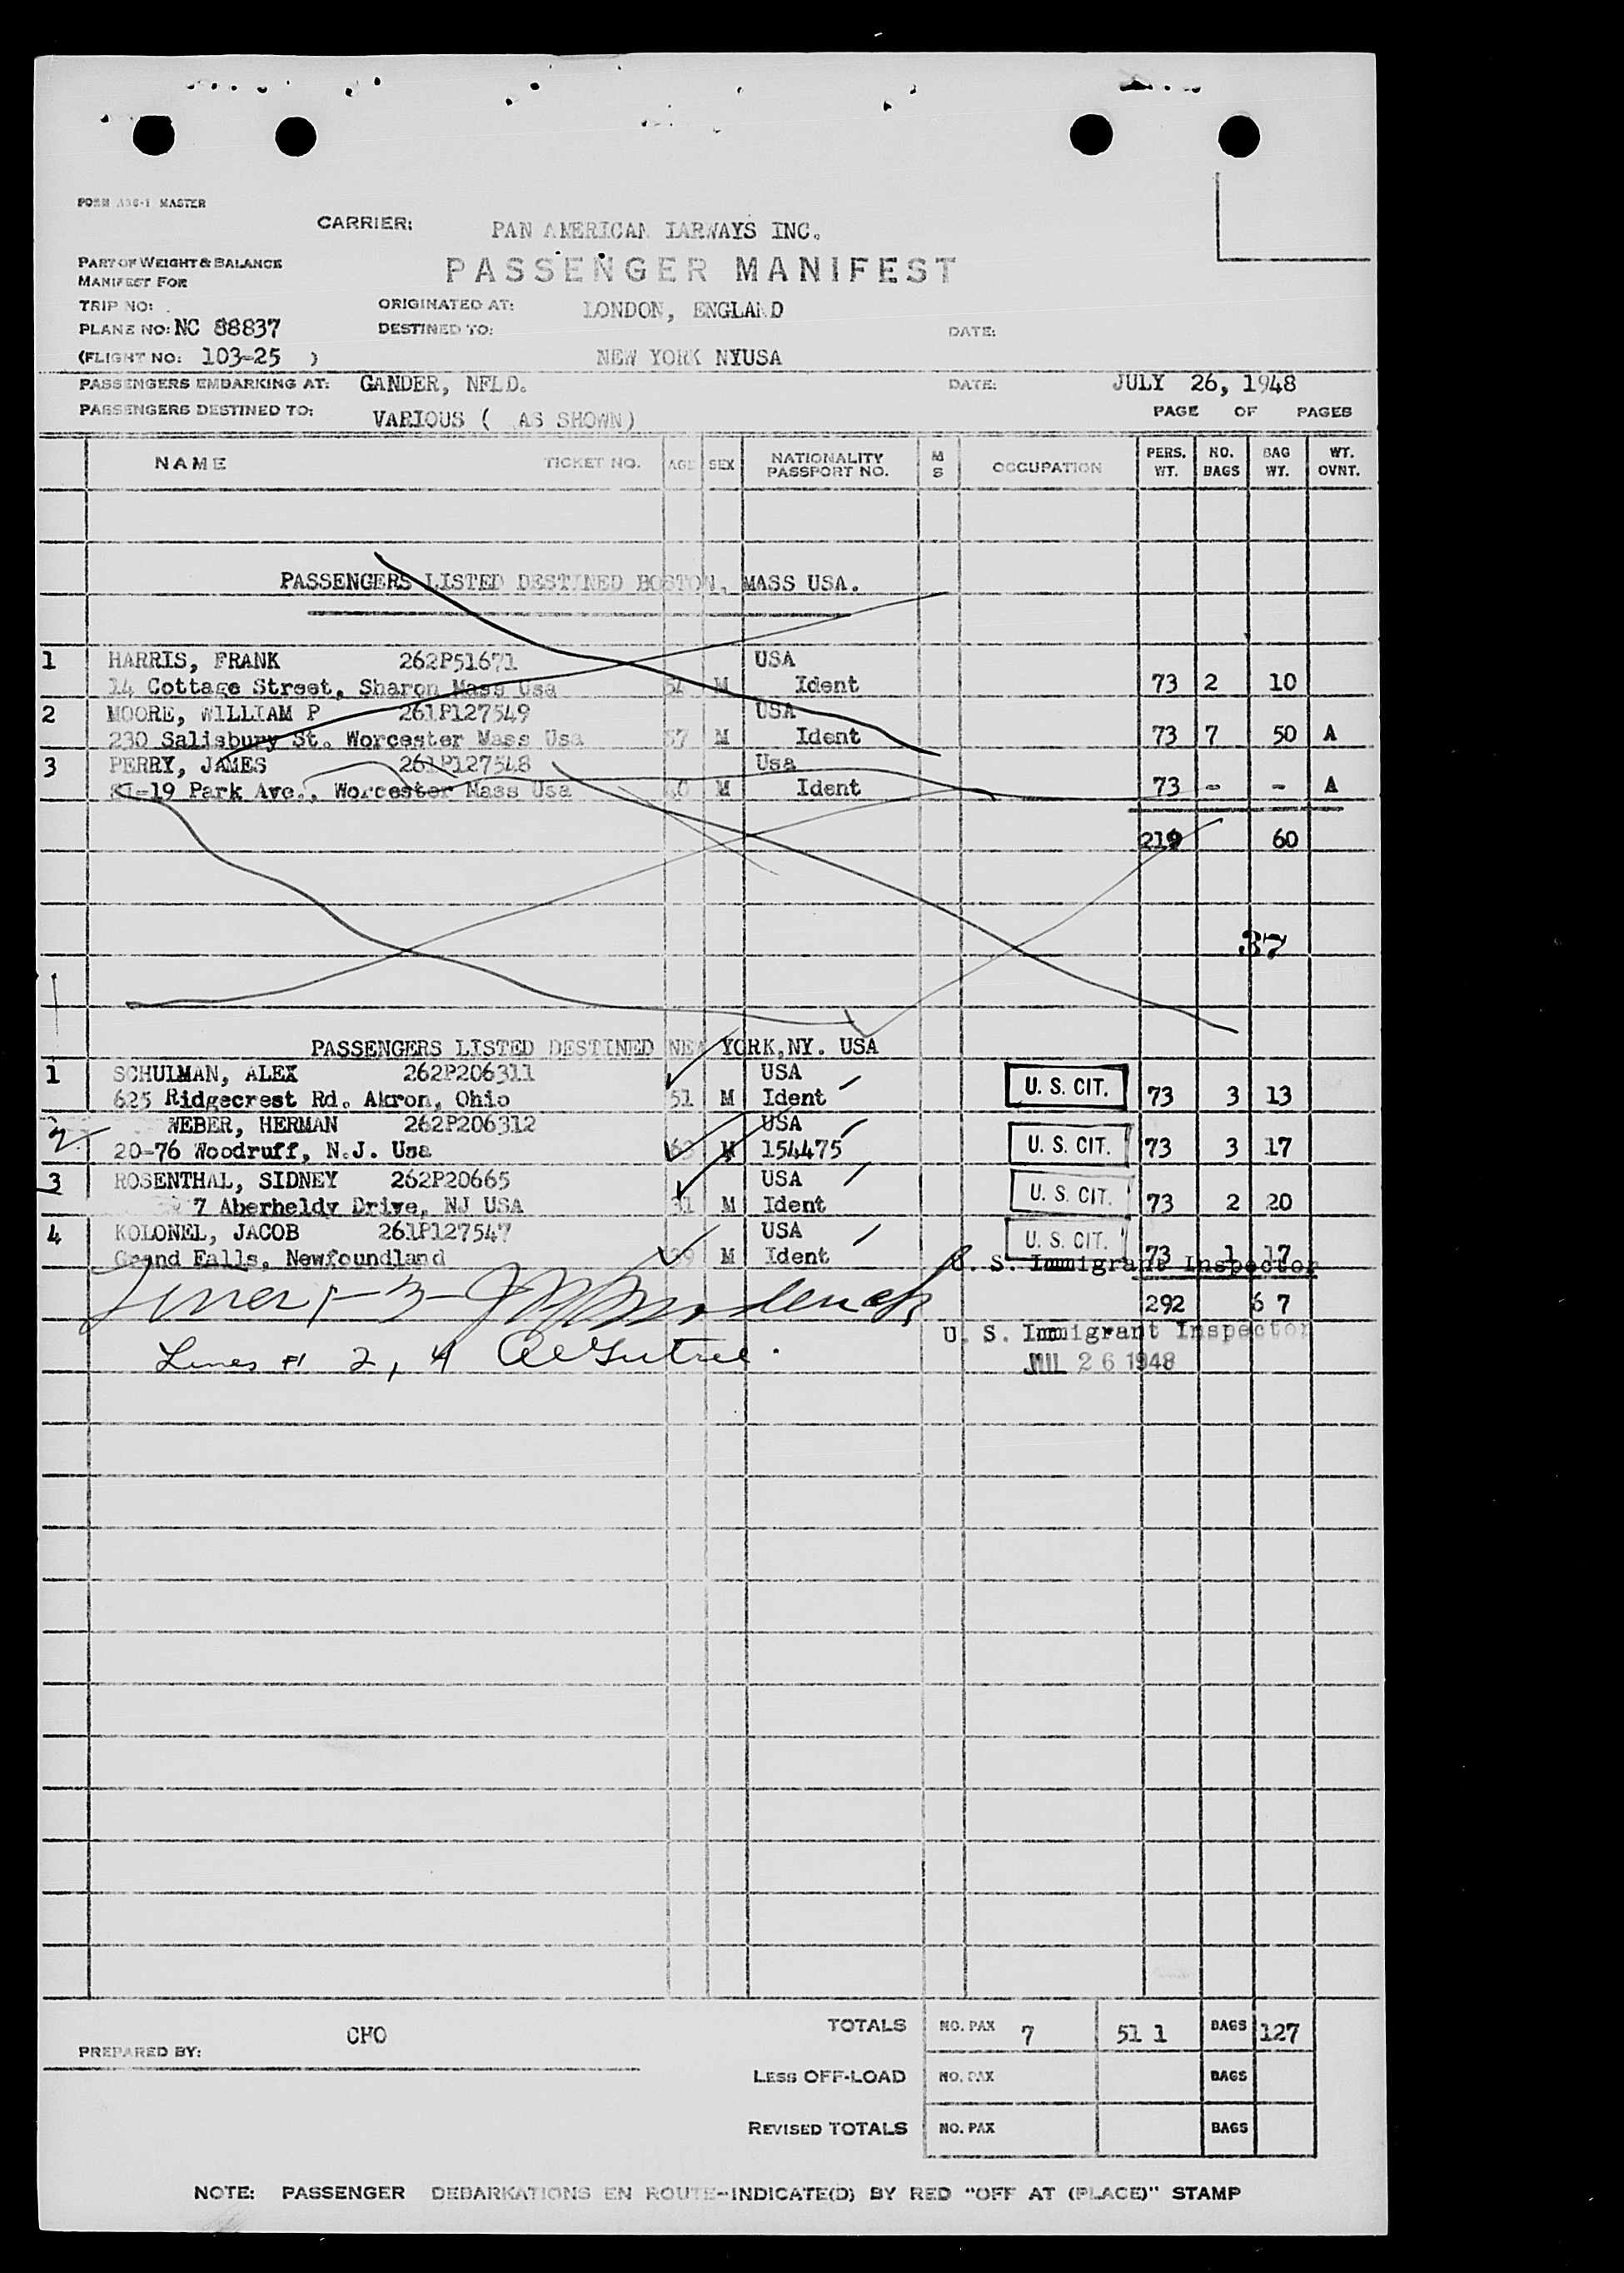 FORM A36-1 MASTER
CARRIER: PAN AMERICAN IARWAYS INC.
PART OF WEIGHT & BALANCE
MANIFEST FOR
PASSENGER MANIFEST
TRIP NO: ORIGINATED AT: LONDON, ENGLAND
PLANE NO: NC 88837 DESTINED TO: DATE:
(FLIGHT NO: 103-25 ) NEW YORK NYUSA
PASSENGERS EMBARKING AT: GANDER, NFLD. DATE: JULY 26, 1948
PASSENGERS DESTINED TO: VARIOUS ( AS SHOWN) PAGE OF PAGES
NAME TICKET NO. AGE SEX NATIONALITY PASSPORT NO. M S OCCUPATION PERS. WT. NO. BAGS BAG WT. WT. OVNT.
PASSENGERS LISTED DESTINED BOSTON, MASS USA.
1 HARRIS, FRANK 262P51671 USA
14 Cottage Street, Sharon Mass Usa M Ident 73 2 10
2 MOORE, WILLIAM P 261P127549 USA
230 Salisbury St. Worcester Mass Usa 57 M Ident 73 7 50 A
3 PERRY, JAMES 261P127548 Usa
81-19 Park Ave., Worcester Mass Usa M Ident 73 - - A
219 60
37
PASSENGERS LISTED DESTINED NEW YORK,NY. USA
1 SCHULMAN, ALEX 262P206311 USA
625 Ridgecrest Rd. Akron, Ohio 51 M Ident U. S. CIT. 73 3 13
2 WEBER, HERMAN 262P206312 USA
20-76 Woodruff, N.J. Usa M 154475 U. S. CIT. 73 3 17
3 ROSENTHAL, SIDNEY 262P20665 USA
7 Aberheldy Drive, NJ USA 31 M Ident U. S. CIT. 73 2 20
4 KOLONEL, JACOB 261P127547 USA
Grand Falls, Newfoundland M Ident U. S. CIT. 73 1 17
U. S. Immigrant Inspector
292 6 7
U. S. Immigrant Inspector
Lines # 2, 4
JUL 26 1948
PREPARED BY: CHO
TOTALS NO. PAX 7 51 1 BAGS 127
LESS OFF-LOAD NO. PAX BAGS
REVISED TOTALS NO. PAX BAGS
NOTE: PASSENGER DEBARKATIONS EN ROUTE-INDICATE(D) BY RED "OFF AT (PLACE)" STAMP